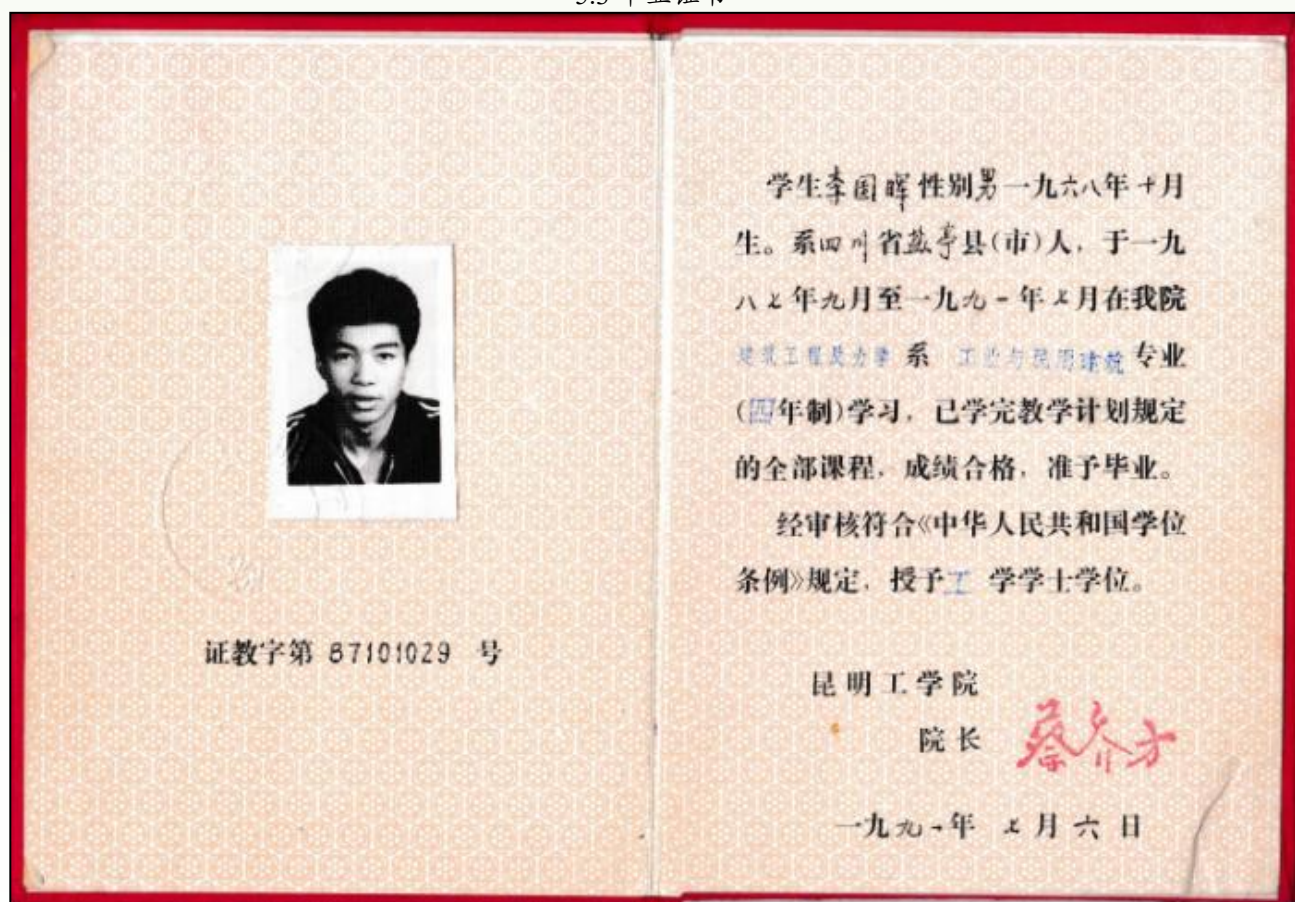 证教字第 87101029 号
学生李国晖性别男一九六八年十月
生。系四川省盐亭县(市)人，于一九
八七年九月至一九九一年七月在我院
建筑工程及力学系 工业与民用建筑专业
(四年制)学习，已学完教学计划规定
的全部课程，成绩合格，准予毕业。
经审核符合《中华人民共和国学位
条例》规定，授予工 学学士学位。
昆明工学院
院长 蔡乔方
一九九一年 七月六日